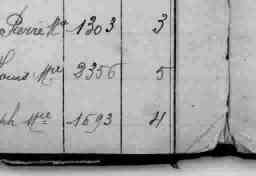 Pierre Mce 1303 3
Louis Mce 2356 5
ph Mce 1693 4